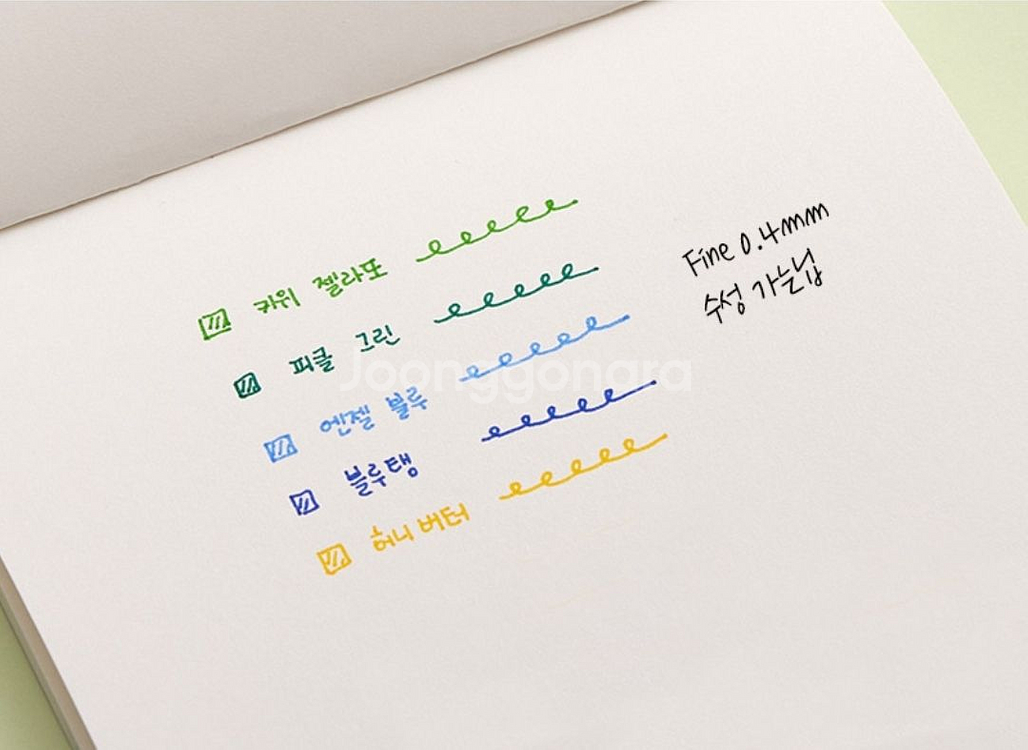 키위 젤라또
피클 그린
엔젤 블루
블루탱
허니버터
Fine 0.4mm
수성 가는닙
Joonggonara